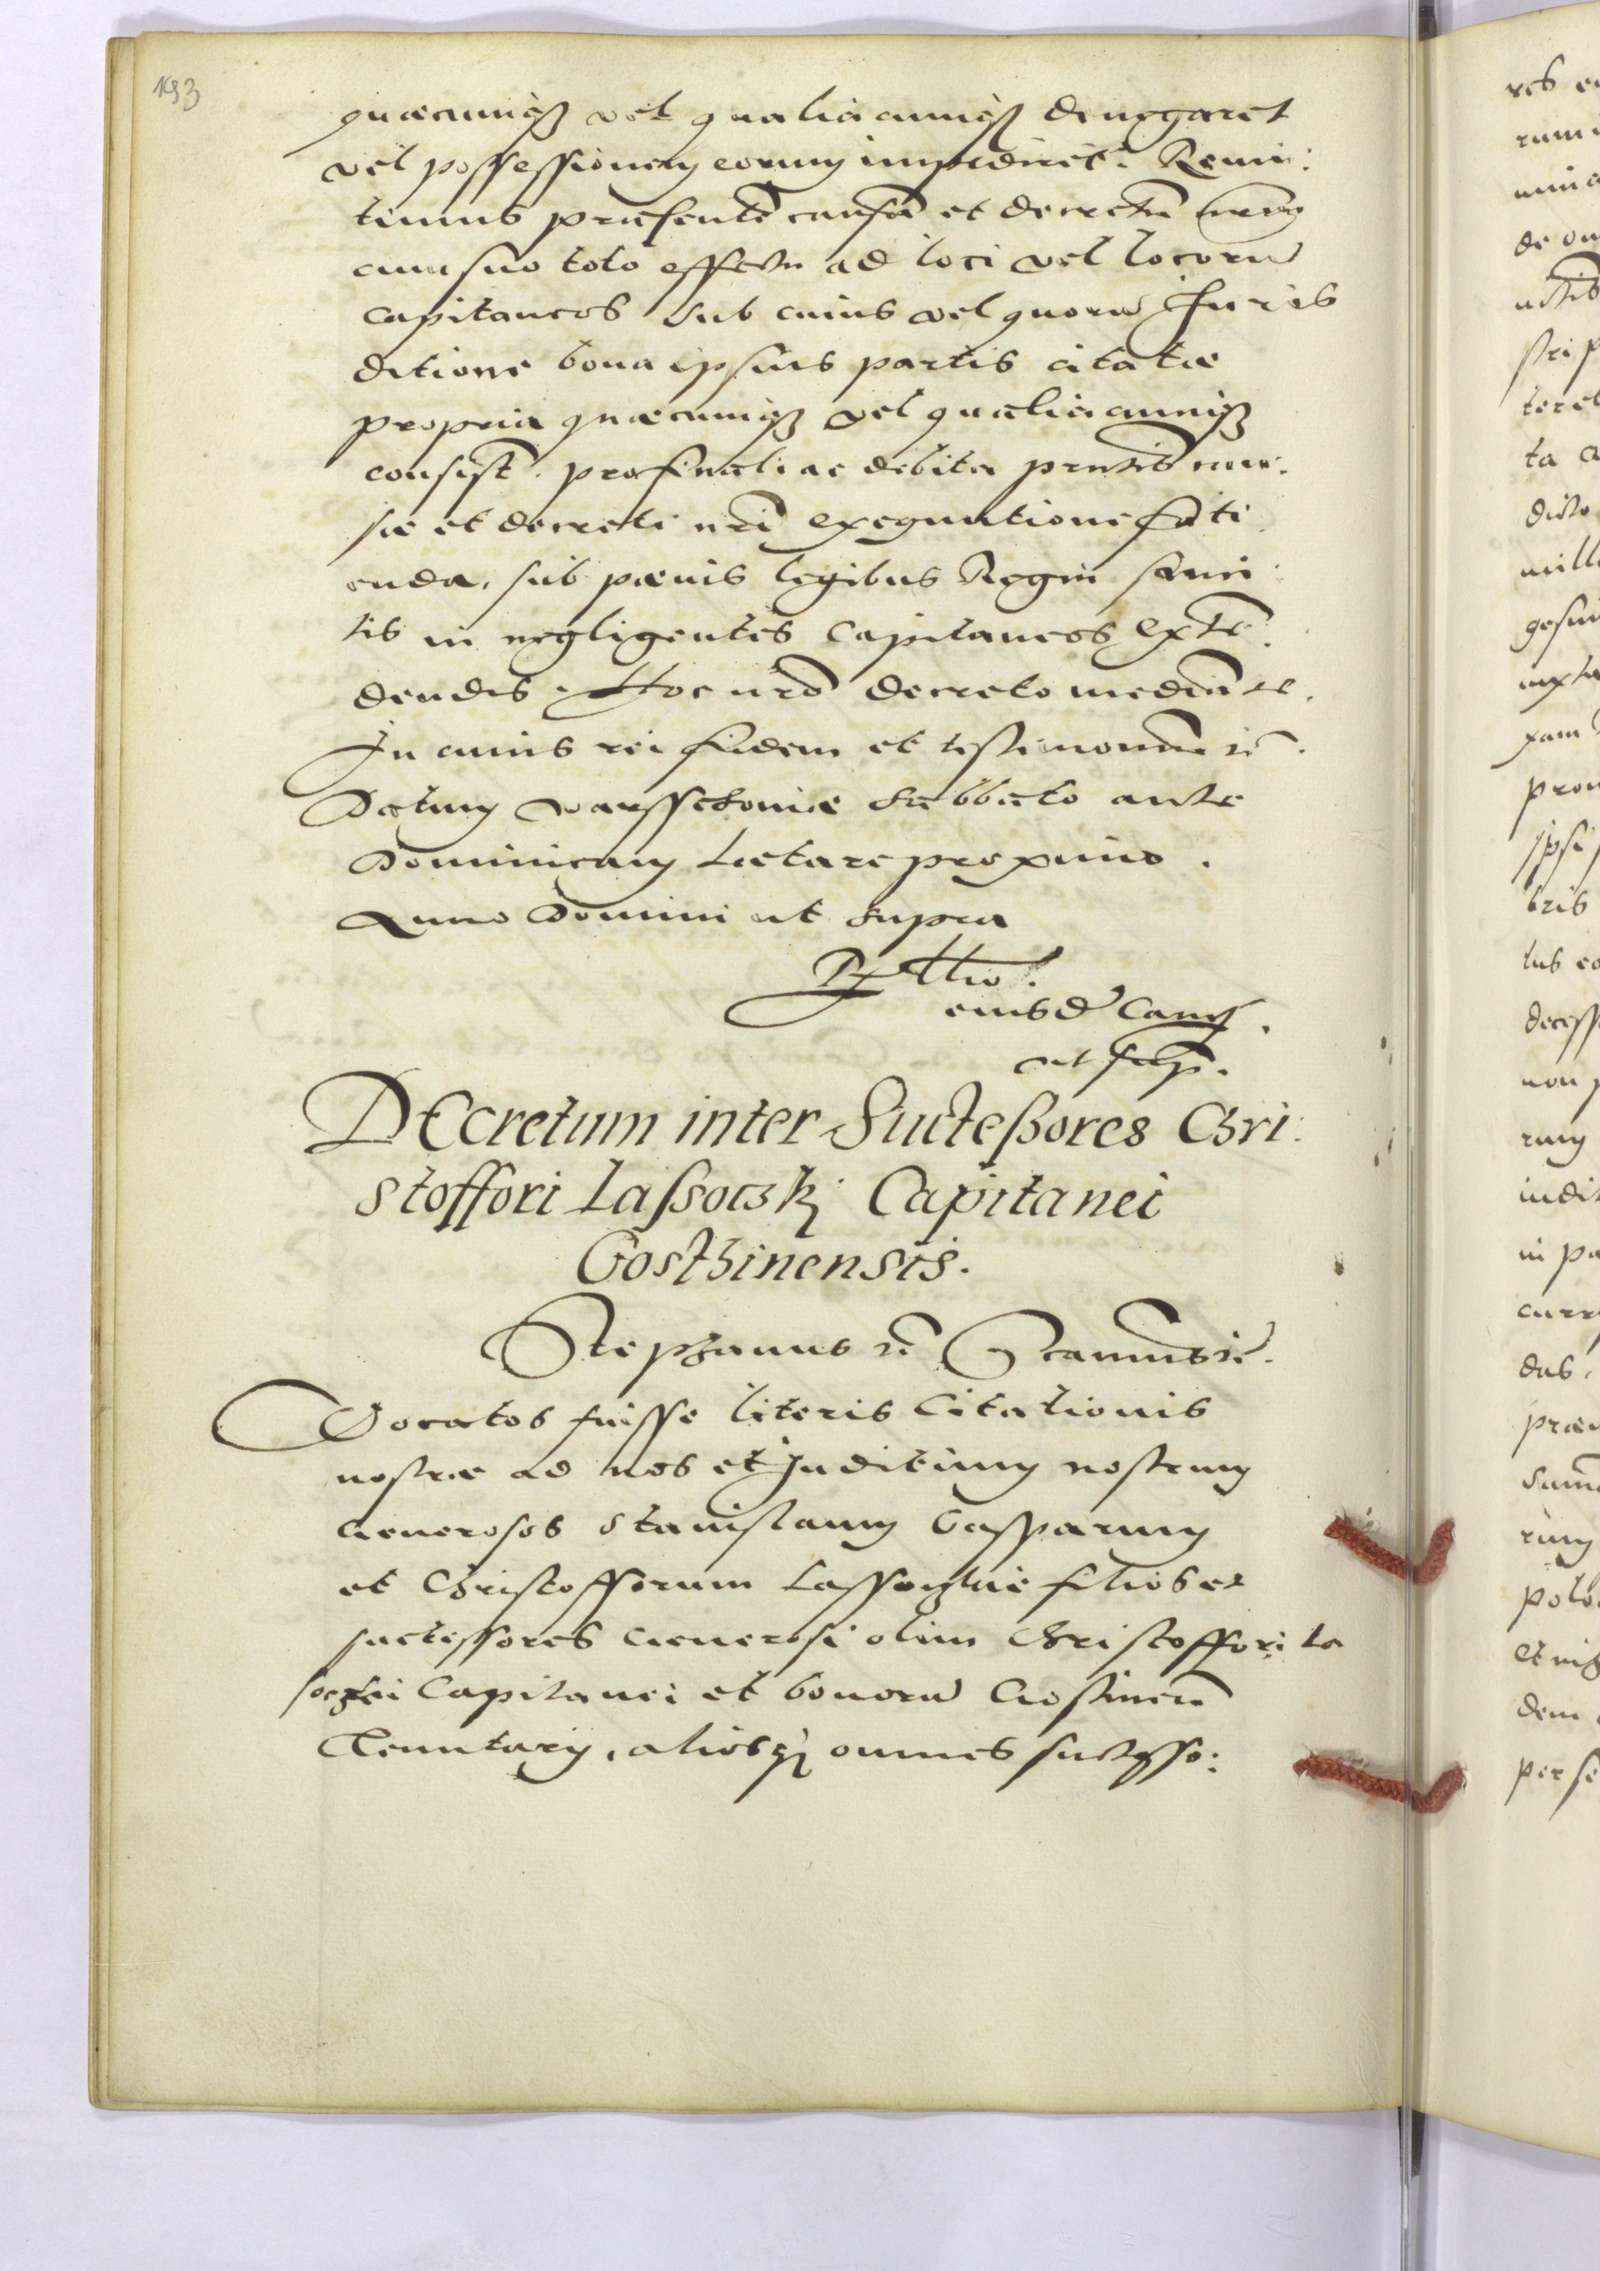 193
quæcunq3 vel qualiacunq3 denegaret
vel possessionem eorum impediret. Remit:
timus præsentē causā et decretū nrūm
cum suo toto effectu ad loci vel locorū
Capitaneos sub cuius vel quorū Iuris
ditione bona ipsius partis citatæ
propria quæcunq3 vel qualiacunq3
consist. pro finali ac debita pntis cau:
sæ et decreti nrī exequutione faci
enda, sub pœnis legibus Regni sanci
tis in negligentes Capitaneos exten
dendis. Hoc nrō decreto mediāte.
In cuius rei fidem et testimoniū rē.
Datum Varssehoviæ Sabbato ante
Dominicam Lætare proximo.
Anno Domini ut supra
eiusdē Canc.
ut
DEcretum inter Suctessores Chri:
stoffori Lassoczkÿ Capitanei
Gosthinensis.
Stephanus rē
Vocatos fuisse literis Citationis
nostræ ad nos et Juditium nostrum
Generosos Stanislaum Casparum
et Christofforum Lassoczkie filios et
suctessores Generosi olim Christoffori La
soczki Capitanei et bonorū Gostinen
Tenutarÿ, aliosq3 omnes suctesso: